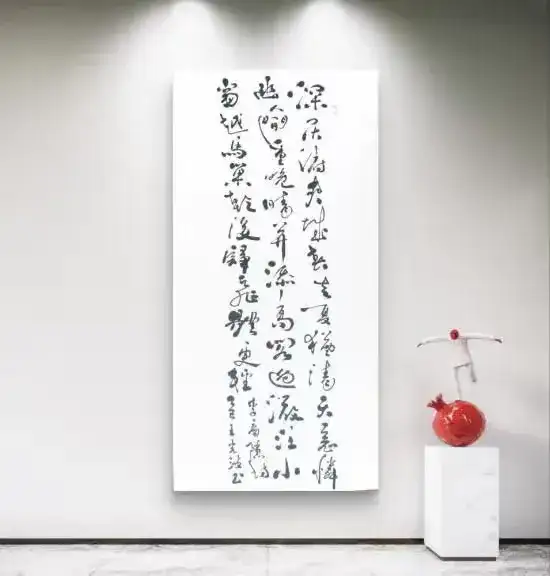 深居俯夹城春去夏猶清天意憐
幽人間重晚晴并添高閣迥微注小
窗越鳥巢乾後歸飛體更輕
李商隱詩